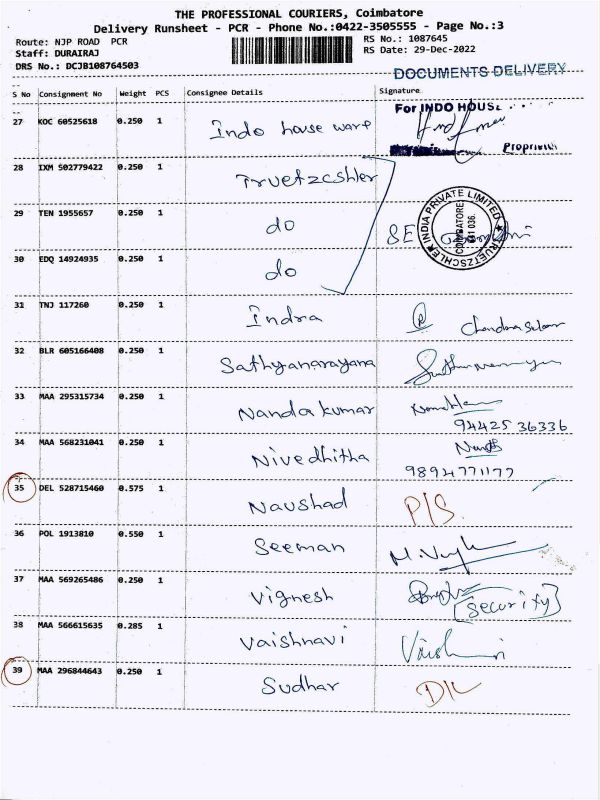 THE PROFESSIONAL COURIERS, Coimbatore
Delivery Runsheet - PCR - Phone No.:0422-3505555 - Page No.:3
Route: NJP ROAD PCR
RS No.: 1087645
Staff: DURAIRAJ
RS Date: 29-Dec-2022
DRS No.: DCJB108764503
DOCUMENTS DELIVERY
S No Consignment No Weight PCS Consignee Details Signature
For INDO HOUSE
27 KOC 60525618 0.250 1 Indo house ware
Proprietor
28 IXM 502779422 0.250 1 Truetzcshler
29 TEN 1955657 0.250 1 do
TRUETZSCHLER INDIA PRIVATE LIMITED
COIMBATORE
641 036.
30 EDQ 14924935 0.250 1 do
31 TNJ 117260 0.250 1 Indra
32 BLR 605166408 0.250 1 Sathyanarayana
33 MAA 295315734 0.250 1 Nanda kumar
94425 36336
34 MAA 568231041 0.250 1 Nivedhitha
9894771177
35 DEL 528715460 0.575 1 Naushad P/S.
36 POL 1913810 0.550 1 Seeman
37 MAA 569265486 0.250 1 Vignesh
[Security]
38 MAA 566615635 0.285 1 Vaishnavi
39 MAA 296844643 0.250 1 Sudhar D/L